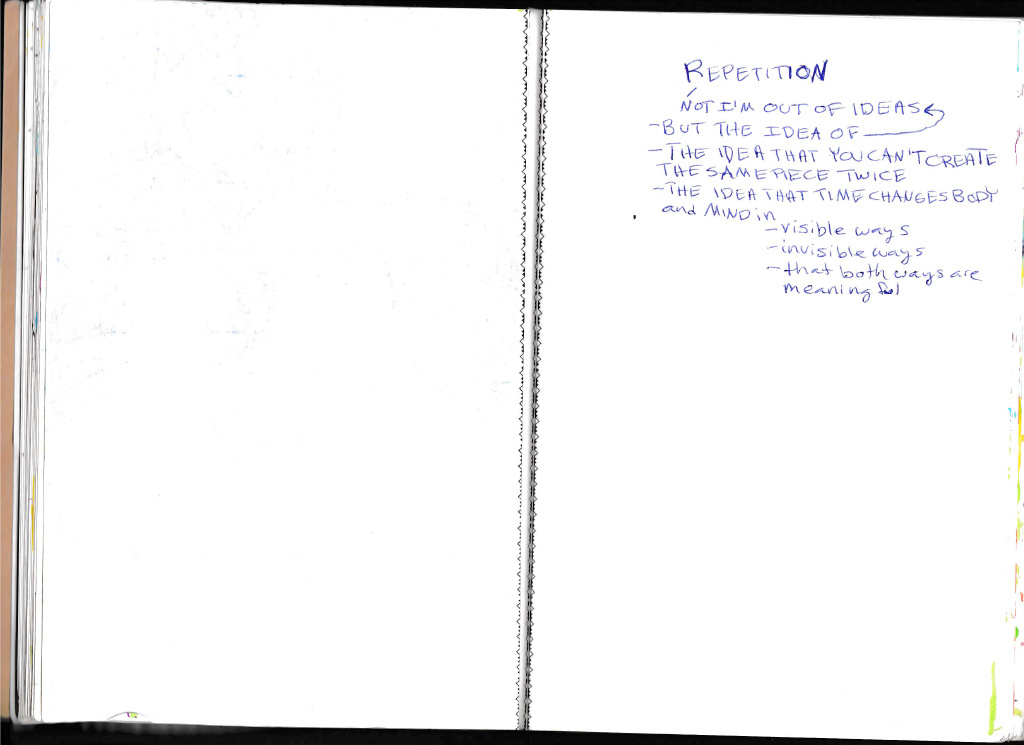 REPETITION
NOT I'M OUT OF IDEAS
- BUT THE IDEA OF
- THE IDEA THAT YOU CAN'T CREATE
THE SAME PIECE TWICE
- THE IDEA THAT TIME CHANGES BODY
and MIND in
- visible ways
- invisible ways
- that both ways are
meaningful